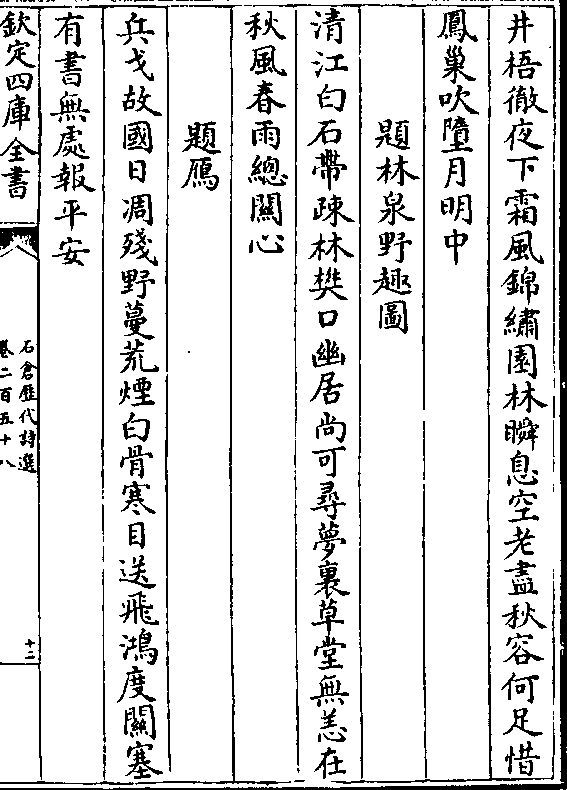 井梧徹夜下霜風錦繡園林瞬息空老盡秋容何足惜
鳳巢吹墮月明中
題林泉野趣圖
清江白石帶疎林樊口幽居尚可尋夢裏草堂無恙在
秋風春雨總關心
題鴈
兵戈故國日凋殘野蔓荒煙白骨寒目送飛鴻度關塞
有書無處報平安
欽定四庫全書
石倉歷代詩選
卷二百五十八
十二